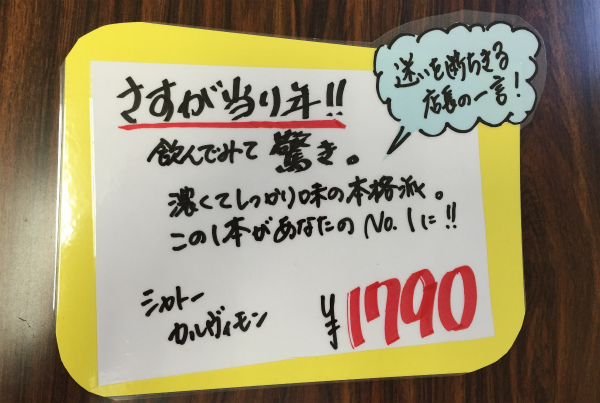 迷いを断ちきる
店長の一言!
さすが当り年!!
飲んでみて驚き。
濃くてしっかり味の本格派。
この1本があなたのNo.1に!!
シャトー
カルヴィモン
¥1790